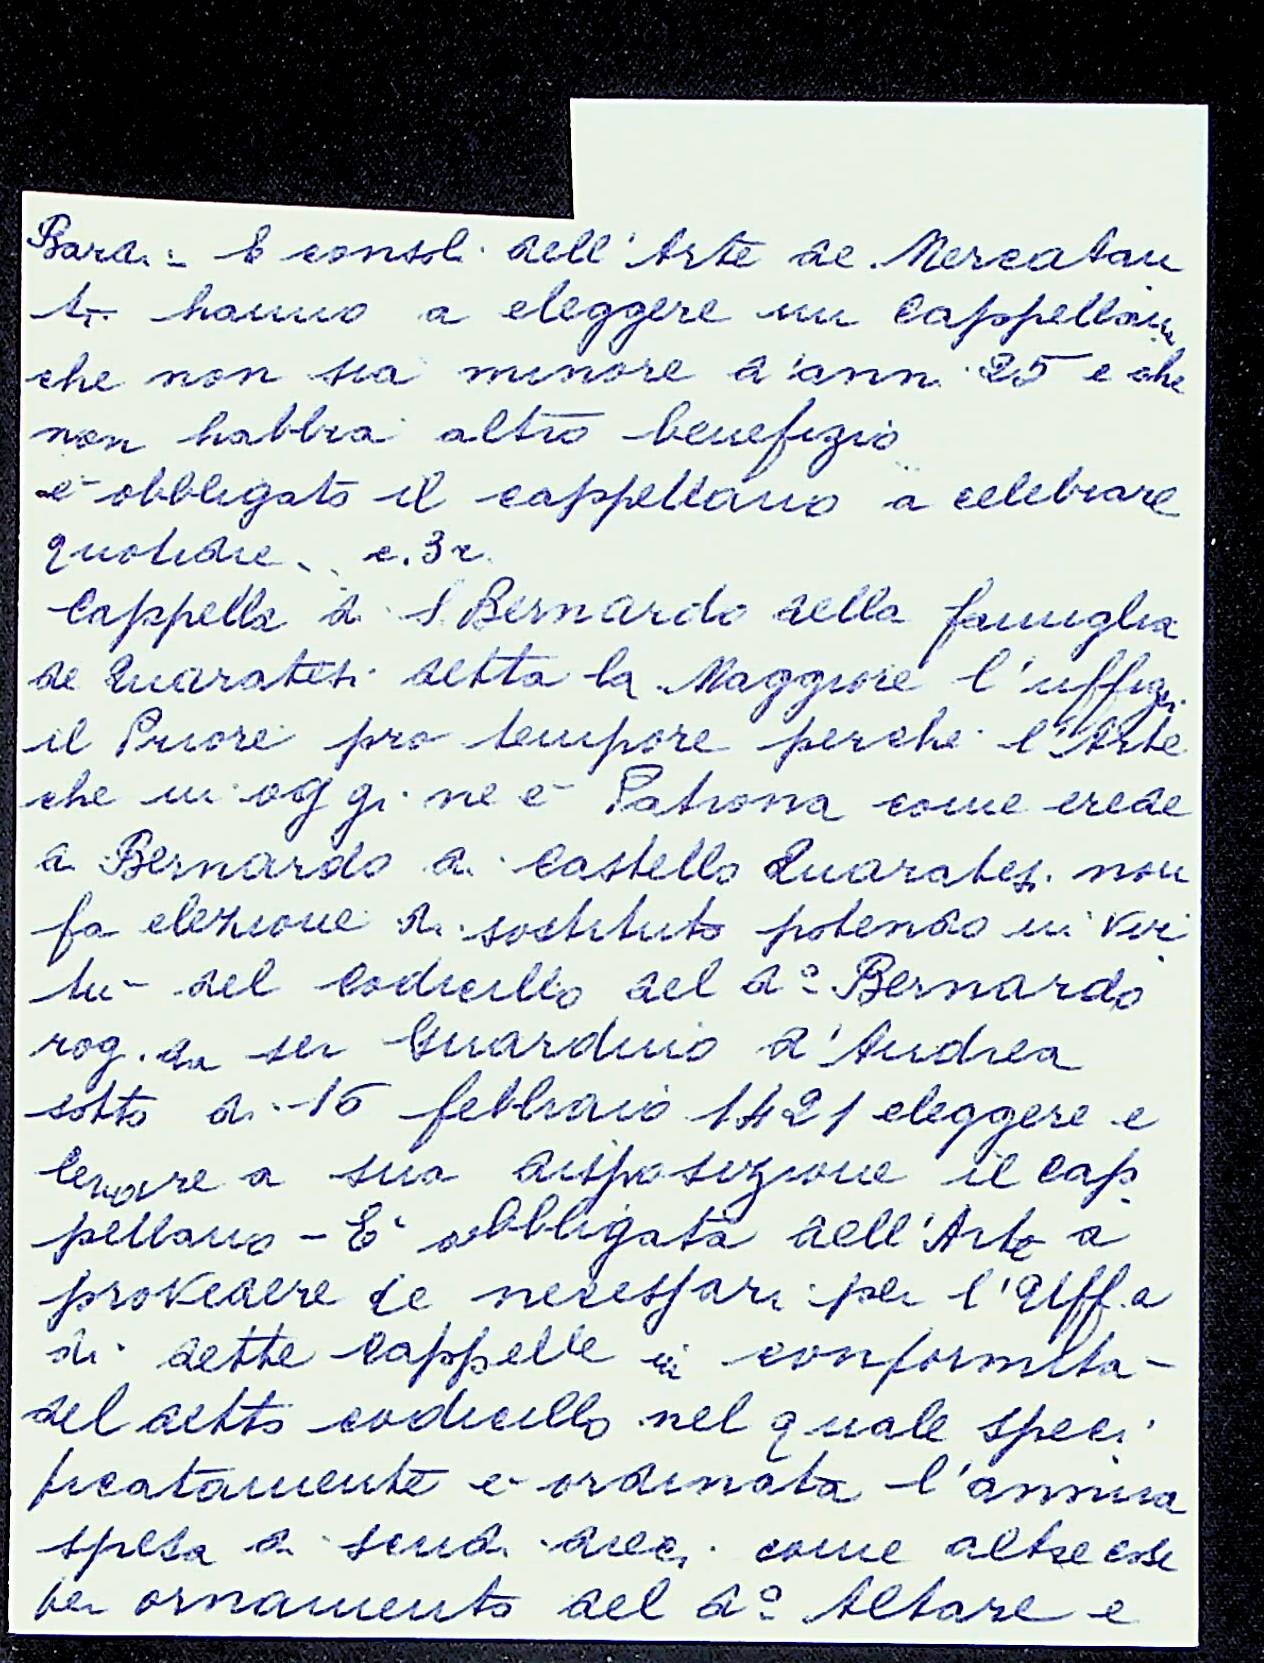 Bardi - E consoli dell'Arte de Mercatan
ti hanno a eleggere un Cappellano
che non sia minore d'anni 25 e che
non habbia altro benefizio
è obbligato il cappellano a celebrare
quotidie. c. 3r.
Cappella di S Bernardo della famiglia
de Quaratesi detta la Maggiore l'uffizi
il Priore pro tempore perche l'Arte
che in oggi ne è Patrona come erede
di Bernardo di Castello Quaratesi non
fa elezione di sostituto potendo in vir
tù del codicillo del dº Bernardo
rog. da ser Guardino d'Andrea
sotto di 16 febbraio 1421 eleggere e
levare a sua disposizione il Cap
pellano - E' obbligata dell'Arte a
provedere de necessari per l'Uff.a
di dette Cappelle in conformità
del detto codicillo nel quale speci
ficatamente è ordinata l'annua
spesa di scudi dieci come altre cose
per ornamento del dº Altare e